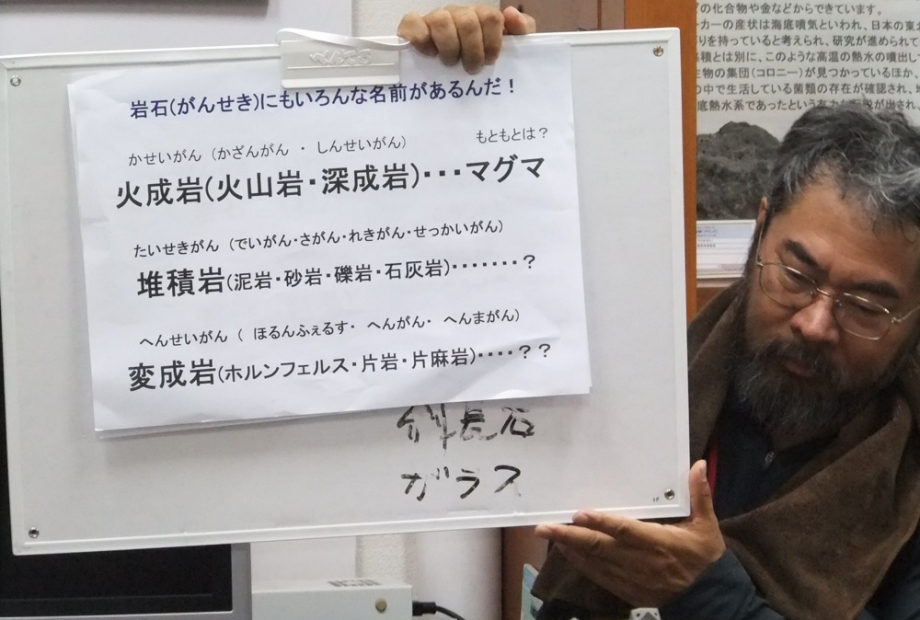 岩石(がんせき)にもいろんな名前があるんだ！
かせいがん （かざんがん ・ しんせいがん） もともとは？
火成岩(火山岩・深成岩)・・・マグマ
たいせきがん （でいがん・さがん・れきがん・せっかいがん）
堆積岩(泥岩・砂岩・礫岩・石灰岩)・・・・・・・？
へんせいがん （ ほるんふぇるす・ へんがん・ へんまがん）
変成岩(ホルンフェルス・片岩・片麻岩)・・・・？？
斜長石
ガラス
の化合物や金などからできています。
カーの産状は海底噴気といわれ、日本の東
りを持っていると考えられ、研究が進められて
積とは別に、このような高温の熱水の噴出し
生物の集団(コロニー)が見つかっているほか、
の中で生活している菌類の存在が確認され、
底熱水系であったという